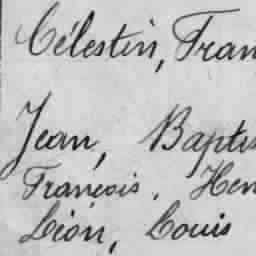 Célestin, Fran
Jean, Baptis
François, Hen
Léon, Louis